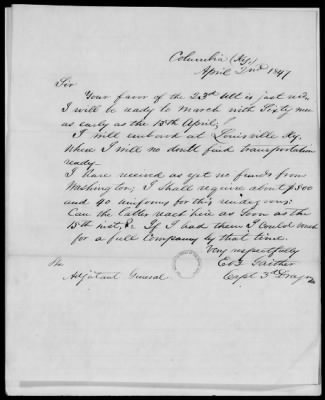 Columbia (Ky)
April 2nd 1847
Sir
Your favor of the 23rd Ult is just recd.
I will be ready to march with Sixty men
as early as the 15th April;
I will embark at Louisville Ky.
Where I will no doubt find transportation
ready.
I have received as yet no funds from
Washington; I shall require about $500
and 90 uniforms for this rendezvous;
Can the latter reach here as soon as the
15th inst, & If I had them I could
for a full Company by that time.
Very respectfully
Gaither
Capt 3rd Dragns
Adjutant General